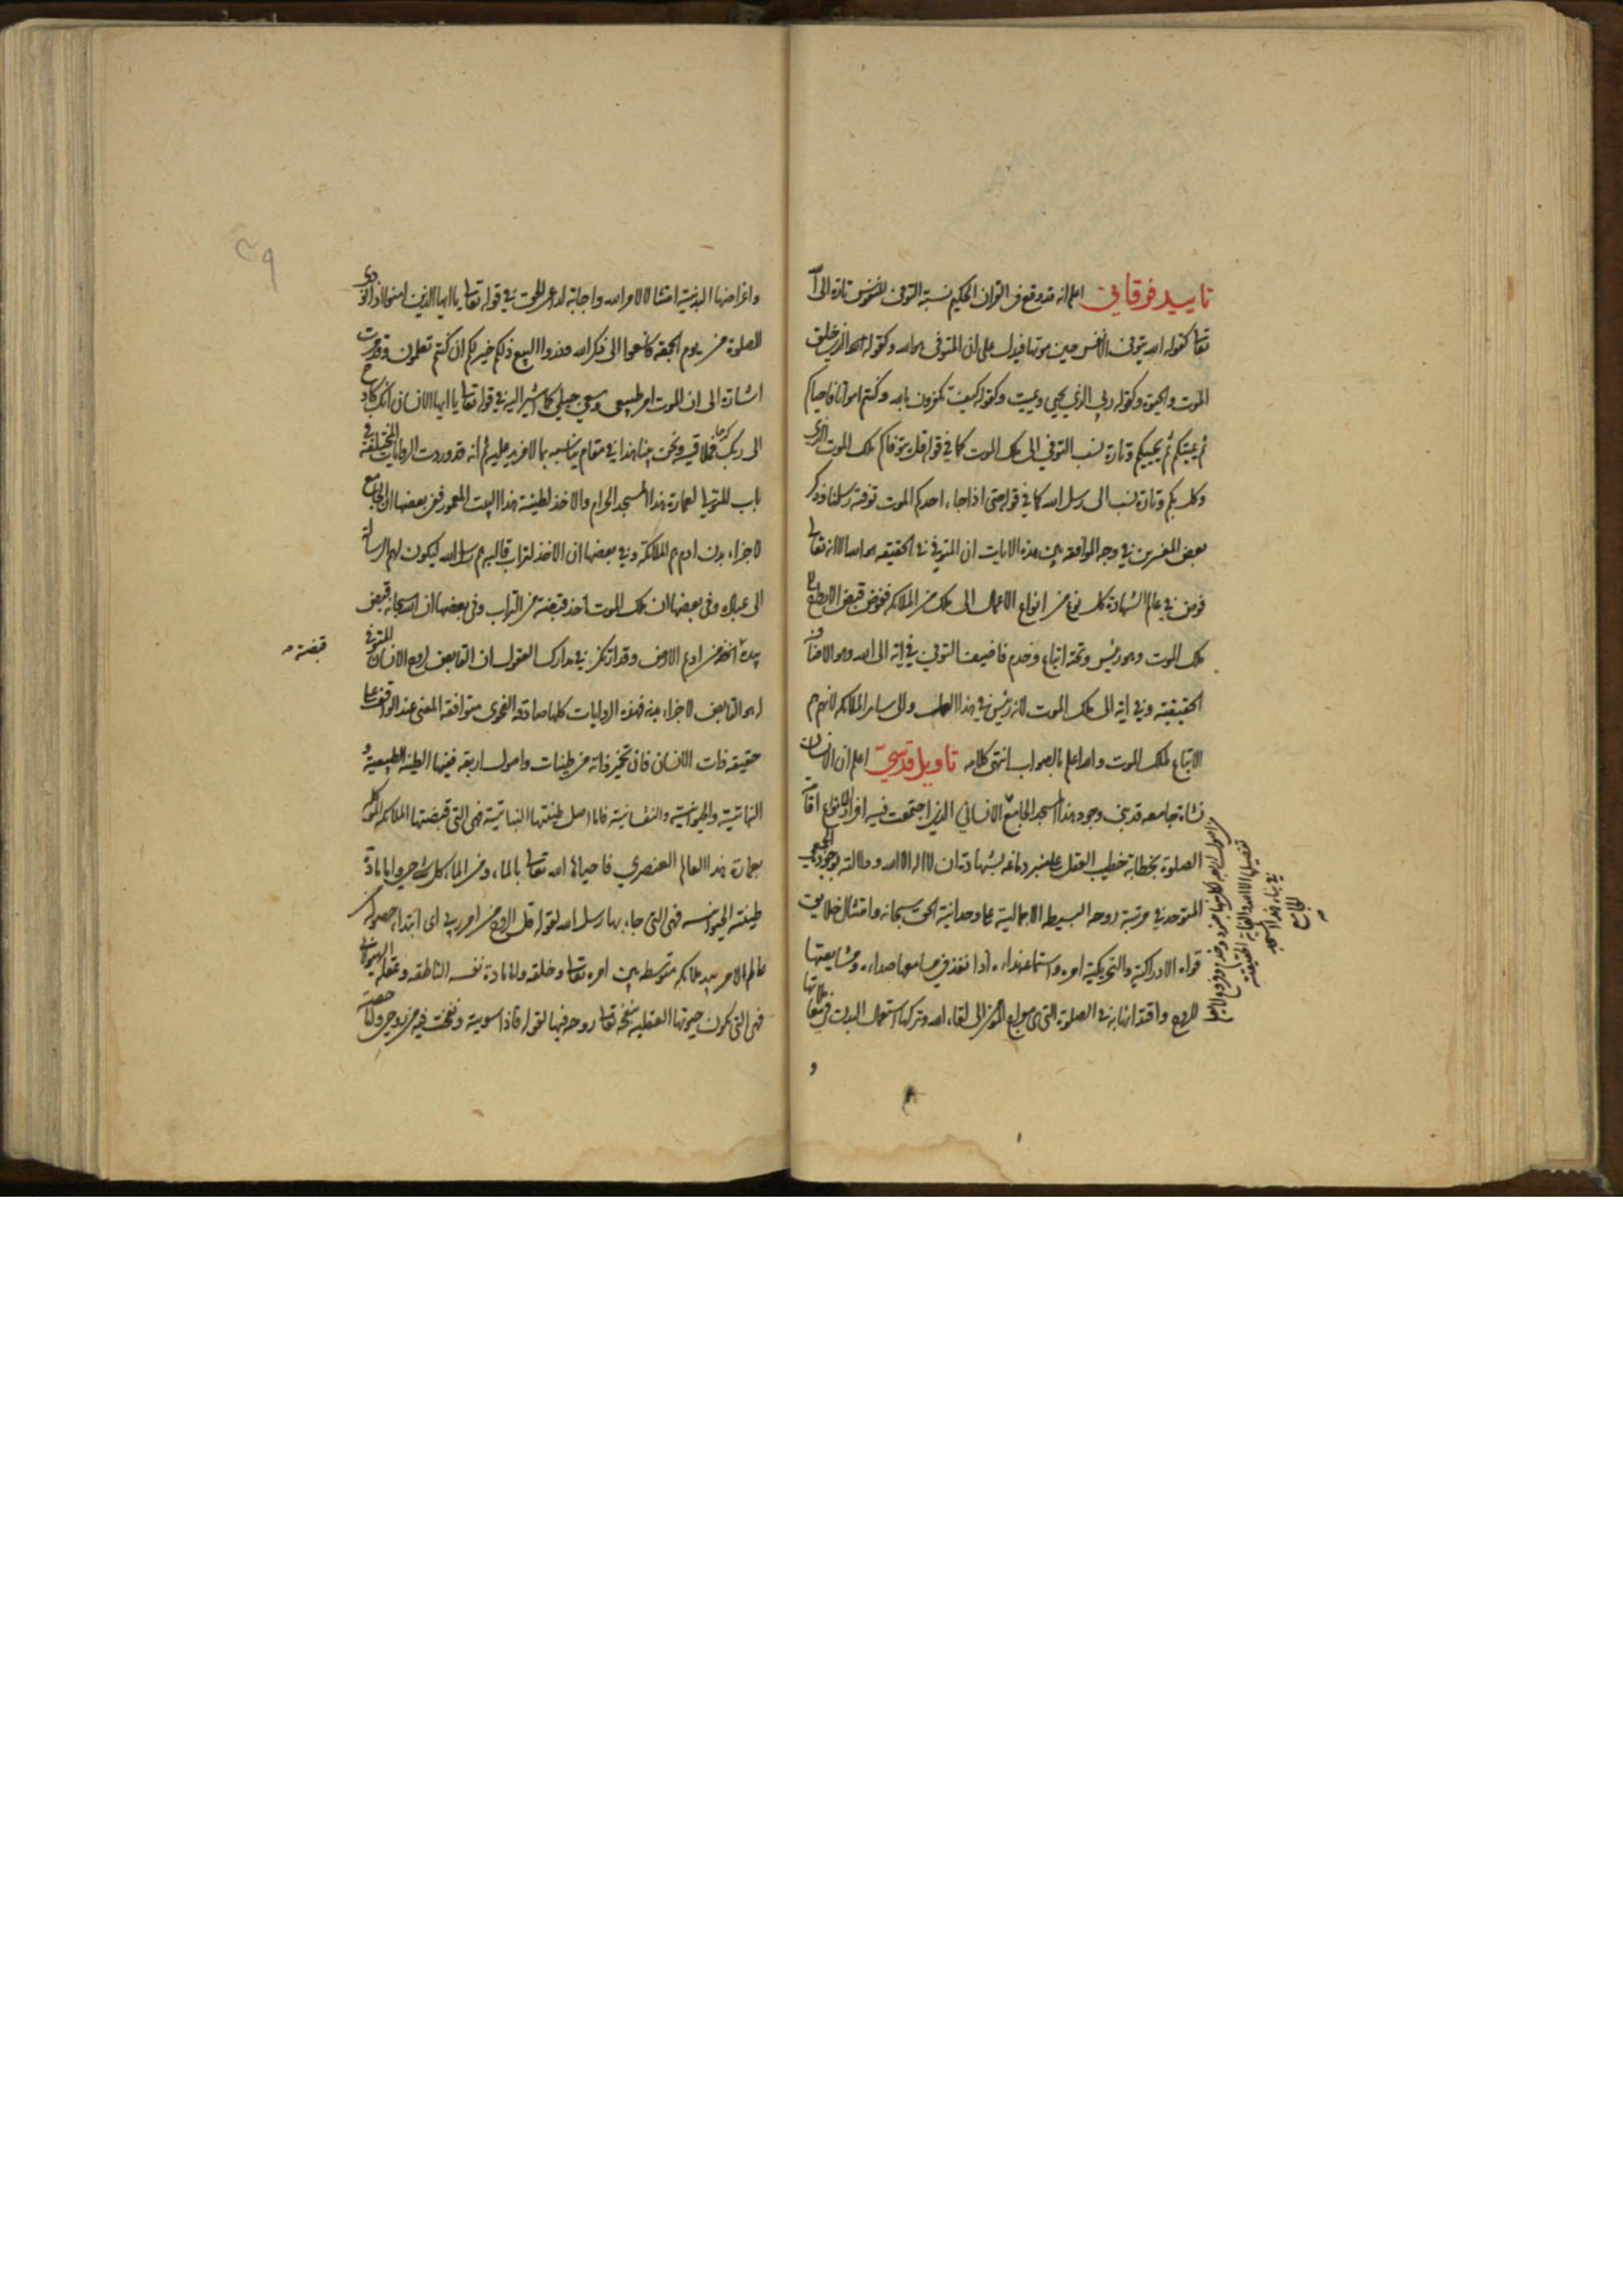 تاييد فرقاني اعلم انه قد وقع في القران الحكيم نسبة التوفي للنفوس تارة الى الله
تعالى كقوله الله يتوفى الانفس حين موتها فيدل على ان المتوفي هو الله وكقوله الله الذي خلق
الموت والحيوة وكقوله ربي الذي يحيي ويميت وكقوله كيف تكفرون بالله وكنتم امواتا فاحياكم
ثم يميتكم ثم يحييكم وتارة نسب التوفي الى ملك الموت كما في قوله قل يتوفاكم ملك الموت الذي
وكل بكم وتارة نسب الى رسل الله كما في قوله حتى اذا جاء احدكم الموت توفته رسلنا فذكر
بعض المفسرين في وجه الموافقة بين هذه الايات ان المتوفي في الحقيقه هو الله الا انه تعالى
فوض في عالم الشهادة كل نوع من انواع الاعمال الى ملك من الملائكه ففوض قبض الارواح الى
ملك الموت وهو رئيس وتحته اتباع وخدم فاضيف التوفي في اية الى الله وهو الاضافة
الحقيقية وفي اية الى ملك الموت لانه رئيس في هذا العمل والى ساير الملائكه لانهم هم
الاتباع لملك الموت والله اعلم بالصواب انتهى كلامه تاويل قدسي اعلم ان الانسان
نشاة جامعه قد بني وجود هذا المسجد الجامع الانساني الذي اجتمعت فيه افراد الانواع اقامة
الصلوة بخطابة خطيب العقل على منبر دماغه بشهادة ان لا اله الا الله ودلالة لوجوده الجمعي
المتوحد في مرتبة روحه البسيط الاجمالية على وحدانية الحق سبحانه وامتثال خلايق
قواه الادراكية والتحريكية امره واستماع نداءه اذا نفذ في مسامعها صداءه ومشايعتها
للروح واقتدائها به في الصلوة التي هي معراج المؤمن الى لقاء الله وتركها استعمال البدن في علايقها
في بناء هذا المسجد
الجامع
و
واغراضها البدنية امتثالا لامر الله واجابة لداعي الحق في قوله تعالى يا ايها الذين امنوا اذا نودي
للصلوة من يوم الجمعة فاسعوا الى ذكر الله وذروا البيع ذلكم خير لكم ان كنتم تعلمون وقد مرت
اشارة الى ان الموت امر طبيعي وسعي جبلي كما اشير اليه في قوله تعالى يا ايها الانسان انك كادح
الى ربك كدحا فملاقيه ونحن بينا هذا في مقام يناسبه بما لا مزيد عليه ثم انه قد وردت الروايات المختلفة في
باب المتولي لعمارة هذا المسجد الحرام والاخذ لطينة هذا البيت المعمور ففي بعضها ان الجامع
لاجزاء بدن ادم هم الملائكة وفي بعضها ان الاخذ لتراب قالبه هم رسل الله ليكون لهم الرسالة
الى عباده وفي بعضها ان ملك الموت اخذ قبضة من التراب وفي بعضها ان الله سبحانه قبض
بيده قبضة من اديم الارض وقد ارتكز في مدارك العقول ان القابض لروح الانسان المتوفي
له هو القابض لاجزاء بدنه فهذه الروايات كلها صادقة الفحوى متوافقة المعنى عند الواقف على
حقيقة ذات الانسان فان تخمير ذاته من طينات واصول اربعة فمنها الطينة الطبيعية و
النباتية والحيوانية والنفسانية فاما اصل طينتها النباتية فهي التي قبضتها الملائكه الموكلة
بعمارة هذا العالم العنصري فاحياها الله تعالى بالماء ومن الماء كل شيء حي واما مادة
طينته الحيوانيه فهي التي جاء بها رسل الله لقوله قل الروح من امر ربي اي ابتداء حصوله من
عالم الامر بيد ملائكه متوسطه بين امره تعالى وخلقه واما مادة نفسه الناطقه وعقله الهيولاني
فهي التي تكون صورتها العقليه بنفخه تعالى روحه فيها لقوله فاذا سويته ونفخت فيه من روحي ولما
قبضته
٣٩